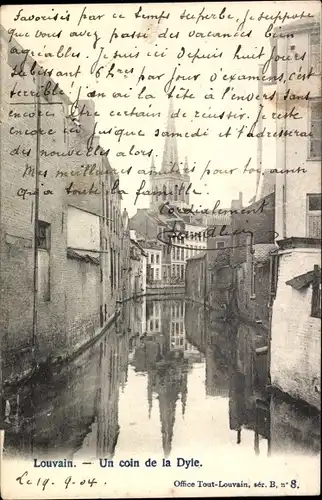 Favorisés par ce temps superbe, je suppose
que vous avez passé des vacances bien
agréables. Je suis ici depuis huit jours
subissant 6 hres par jour d'examens, c'est
terrible! J'en ai la tête à l'envers sans
encore être certain de réussir. J'y reste
encore jusque samedi et t'adresserai
des nouvelles alors.
Mes meilleures amitiés pour toi, ainsi
qu'à toute la famille.
Cordialement
Louvain. - Un coin de la Dyle.
Office Tout-Louvain, sér. B, n° 8.
Le 19. 9. 04.